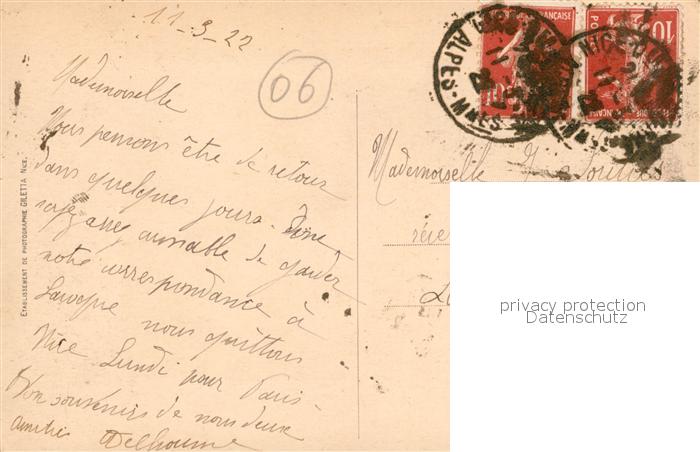 11_3_22
06
Mademoiselle
Nous pensons être de retour
dans quelques jours. Donc
soyez aimable de garder
notre correspondance à
nous quittons
Nice Lundi pour Paris_
Bon souvenirs de nous deux
amitiés Delhoume
ETABLISSEMENT DE PHOTOGRAPHIE GILETTA NICE.
Mademoiselle
10
10
ALPES-MMES
NICE
privacy protection
Datenschutz